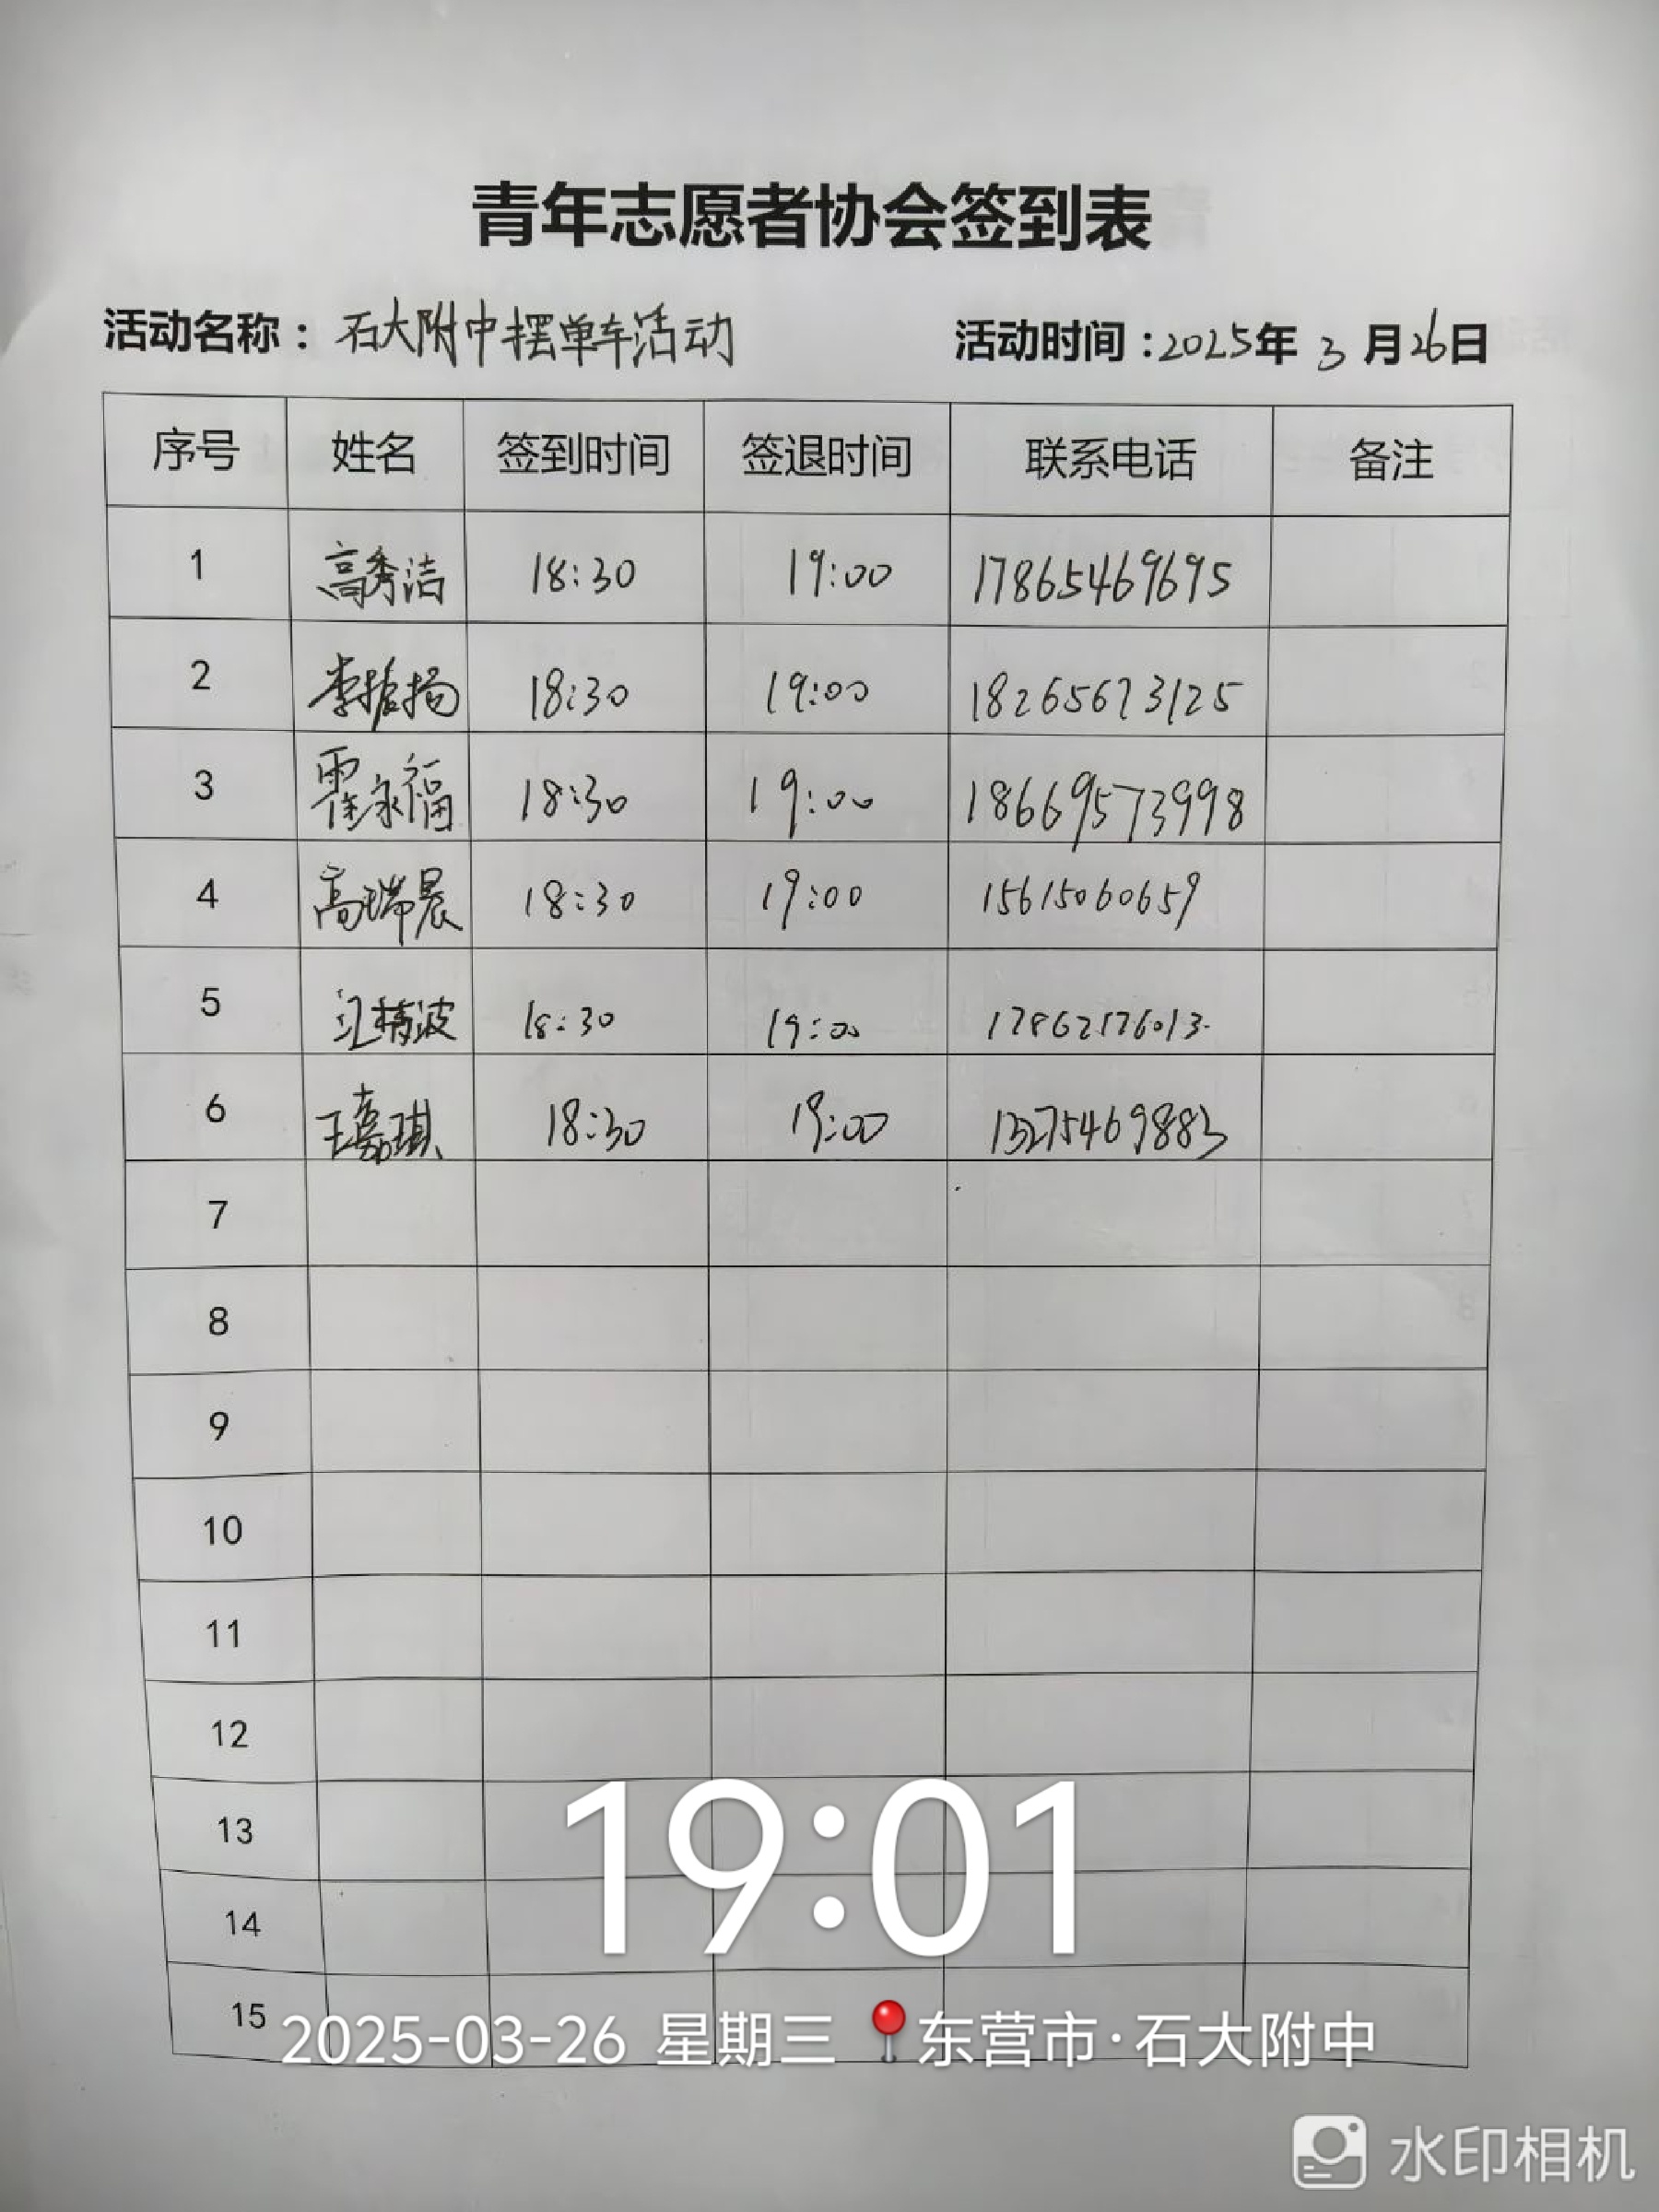 青年志愿者协会签到表
活动名称：石大附中摆单车活动 活动时间：2025年3月26日
序号 姓名 签到时间 签退时间 联系电话 备注
1 高秀洁 18:30 19:00 17865469695
2 李 扬 18:30 19:00 18265673125
3 霍永福 18:30 19:00 18669573998
4 高瑞晨 18:30 19:00 15615060659
5 江精波 18:30 19:00
6 王嘉琪 18:30 19:00 13275469883
7
8
9
10
11
12
13
14
15
19:01
2025-03-26 星期三 东营市·石大附中
水印相机